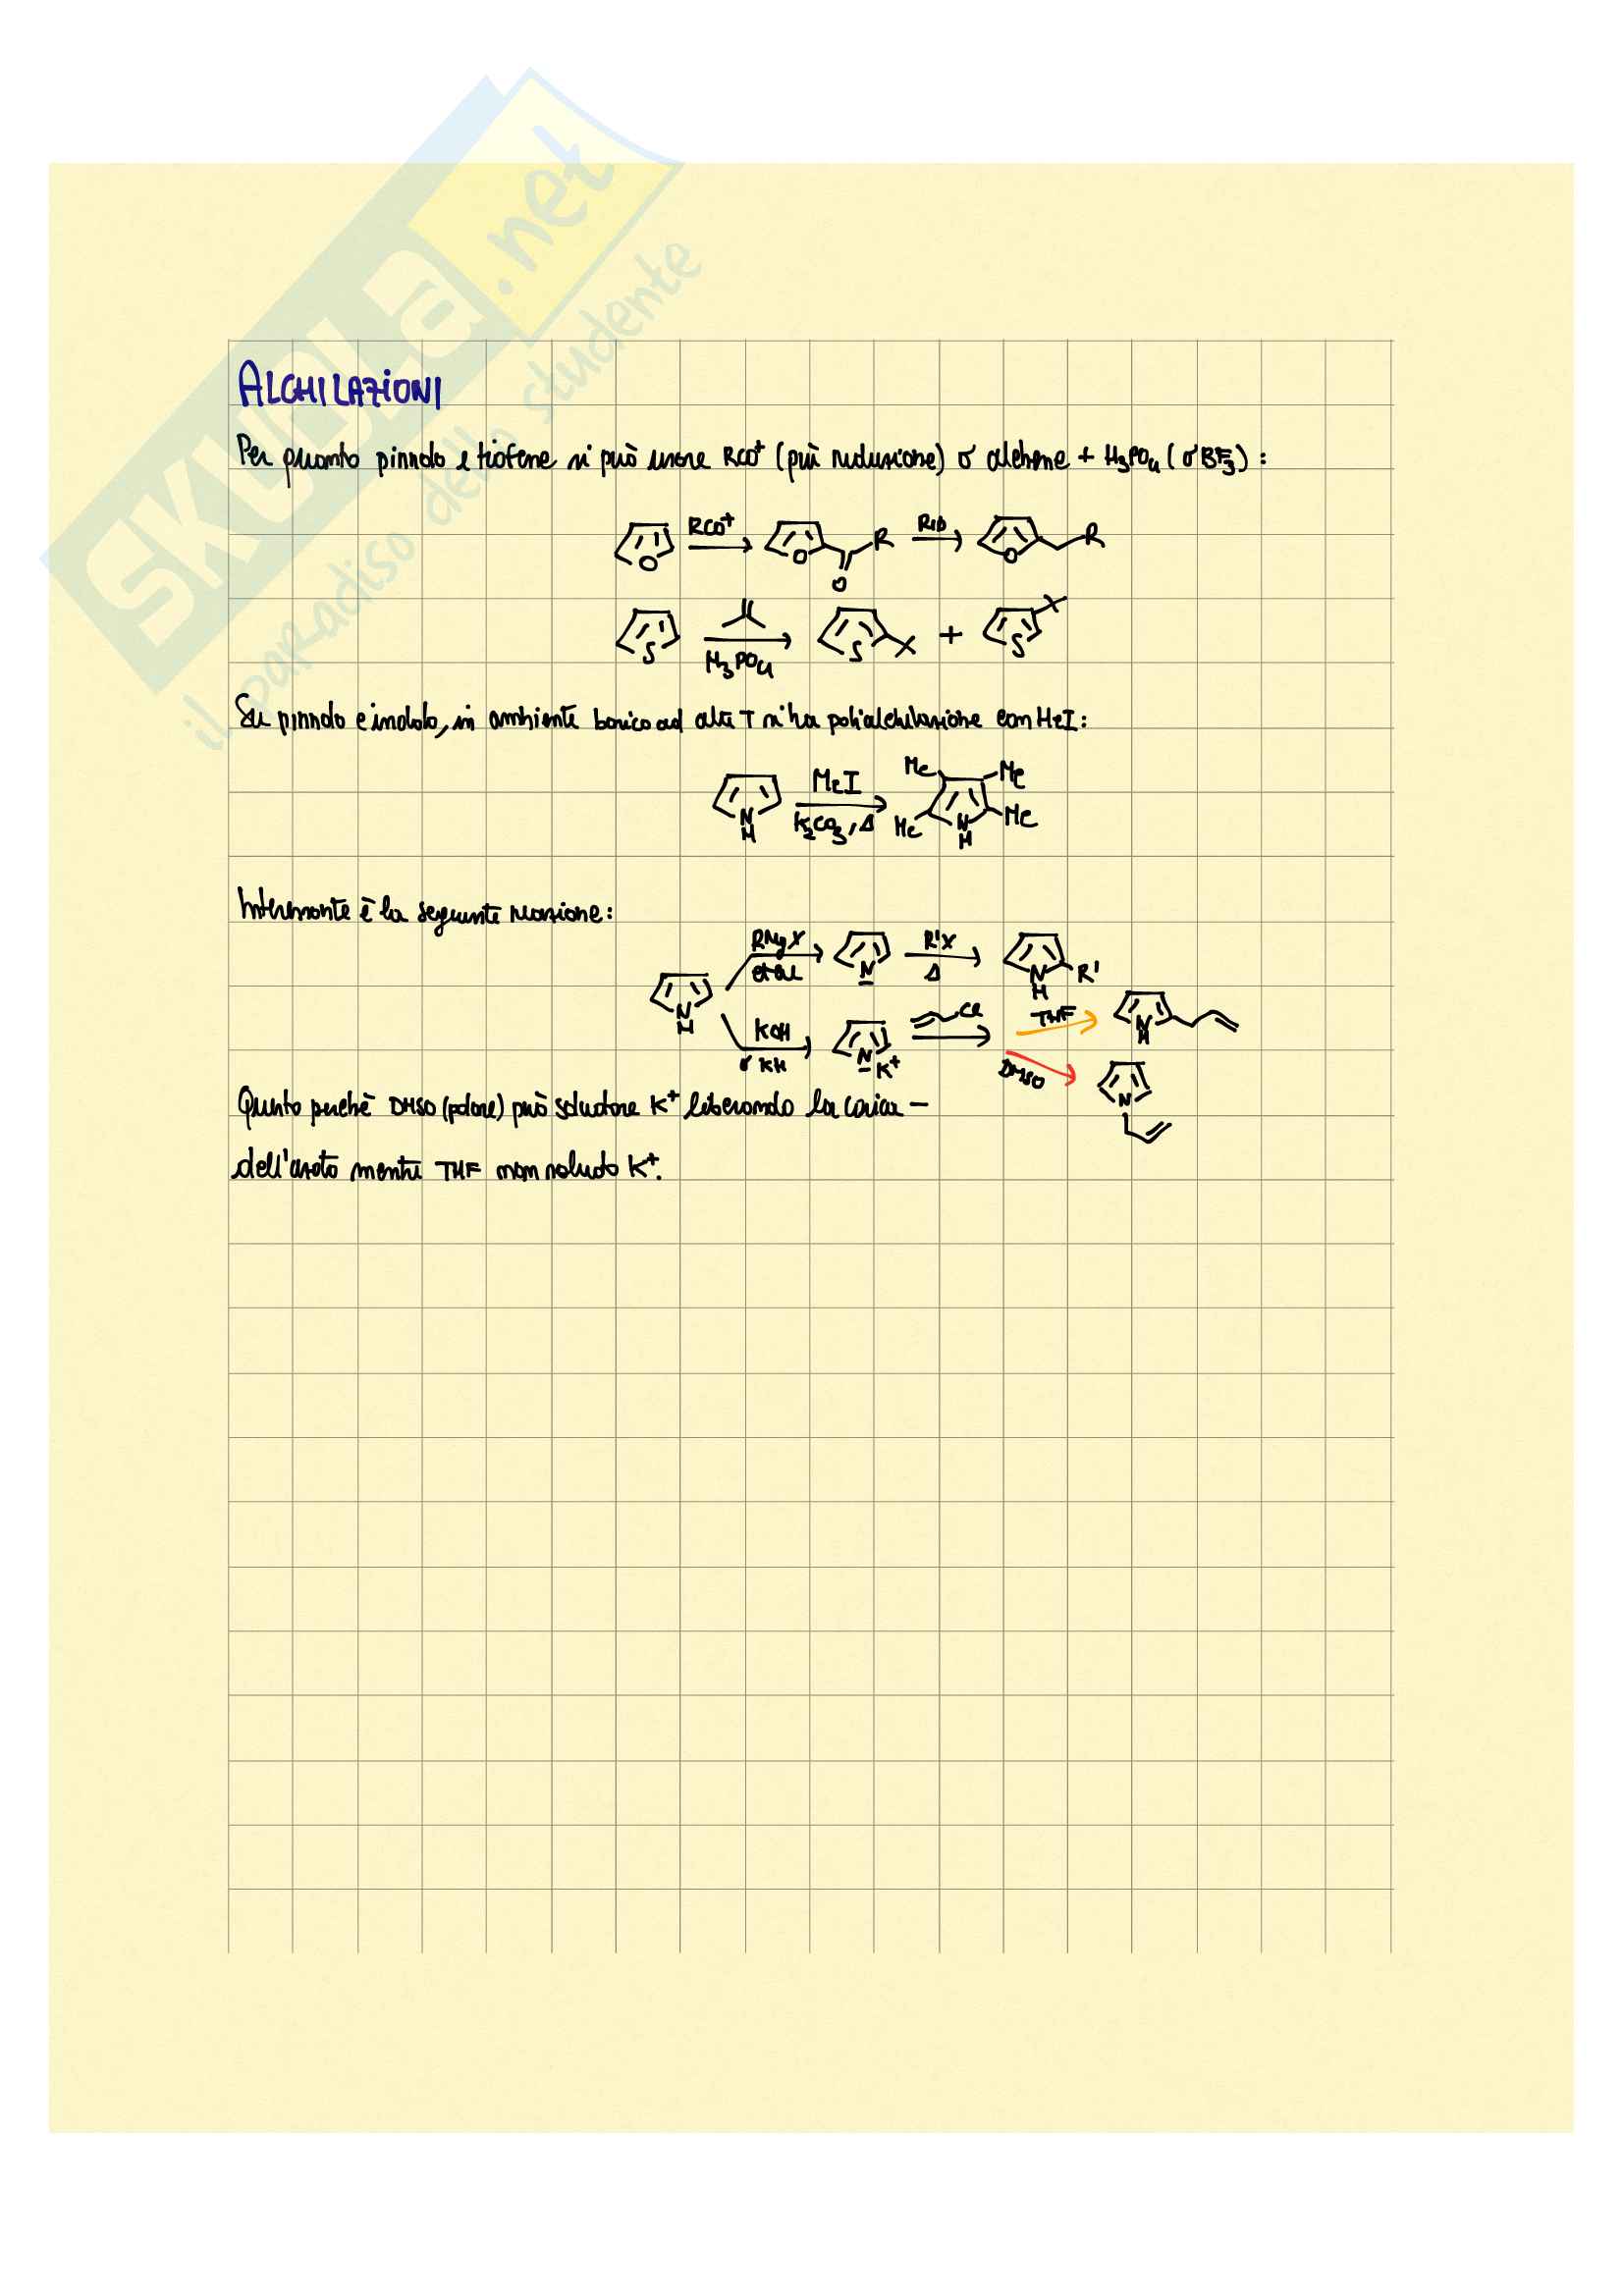 SKUOLA.net
il paradiso dello studente
ALCHILAZIONI
Per quanto pirrolo e tiofene si può usare RCO⁺ (più riduzione) o alchene + H₃PO₄ (o BF₃):
O RCO⁺ O O R RID O R
S H₃PO₄ S + S
Su pirrolo e indolo, in ambiente basico ad alta T si ha polialchilazione con MeI:
N H MeI K₂CO₃, Δ Me Me Me Me N H
Interessante è la seguente reazione:
N H RMgX et al N R'X Δ N H R'
KOH o KH N K⁺ Cl THF N H
DMSO N
Questo perché DMSO (polare) può solvatare K⁺ liberando la carica –
dell'azoto mentre THF non solvata K⁺.